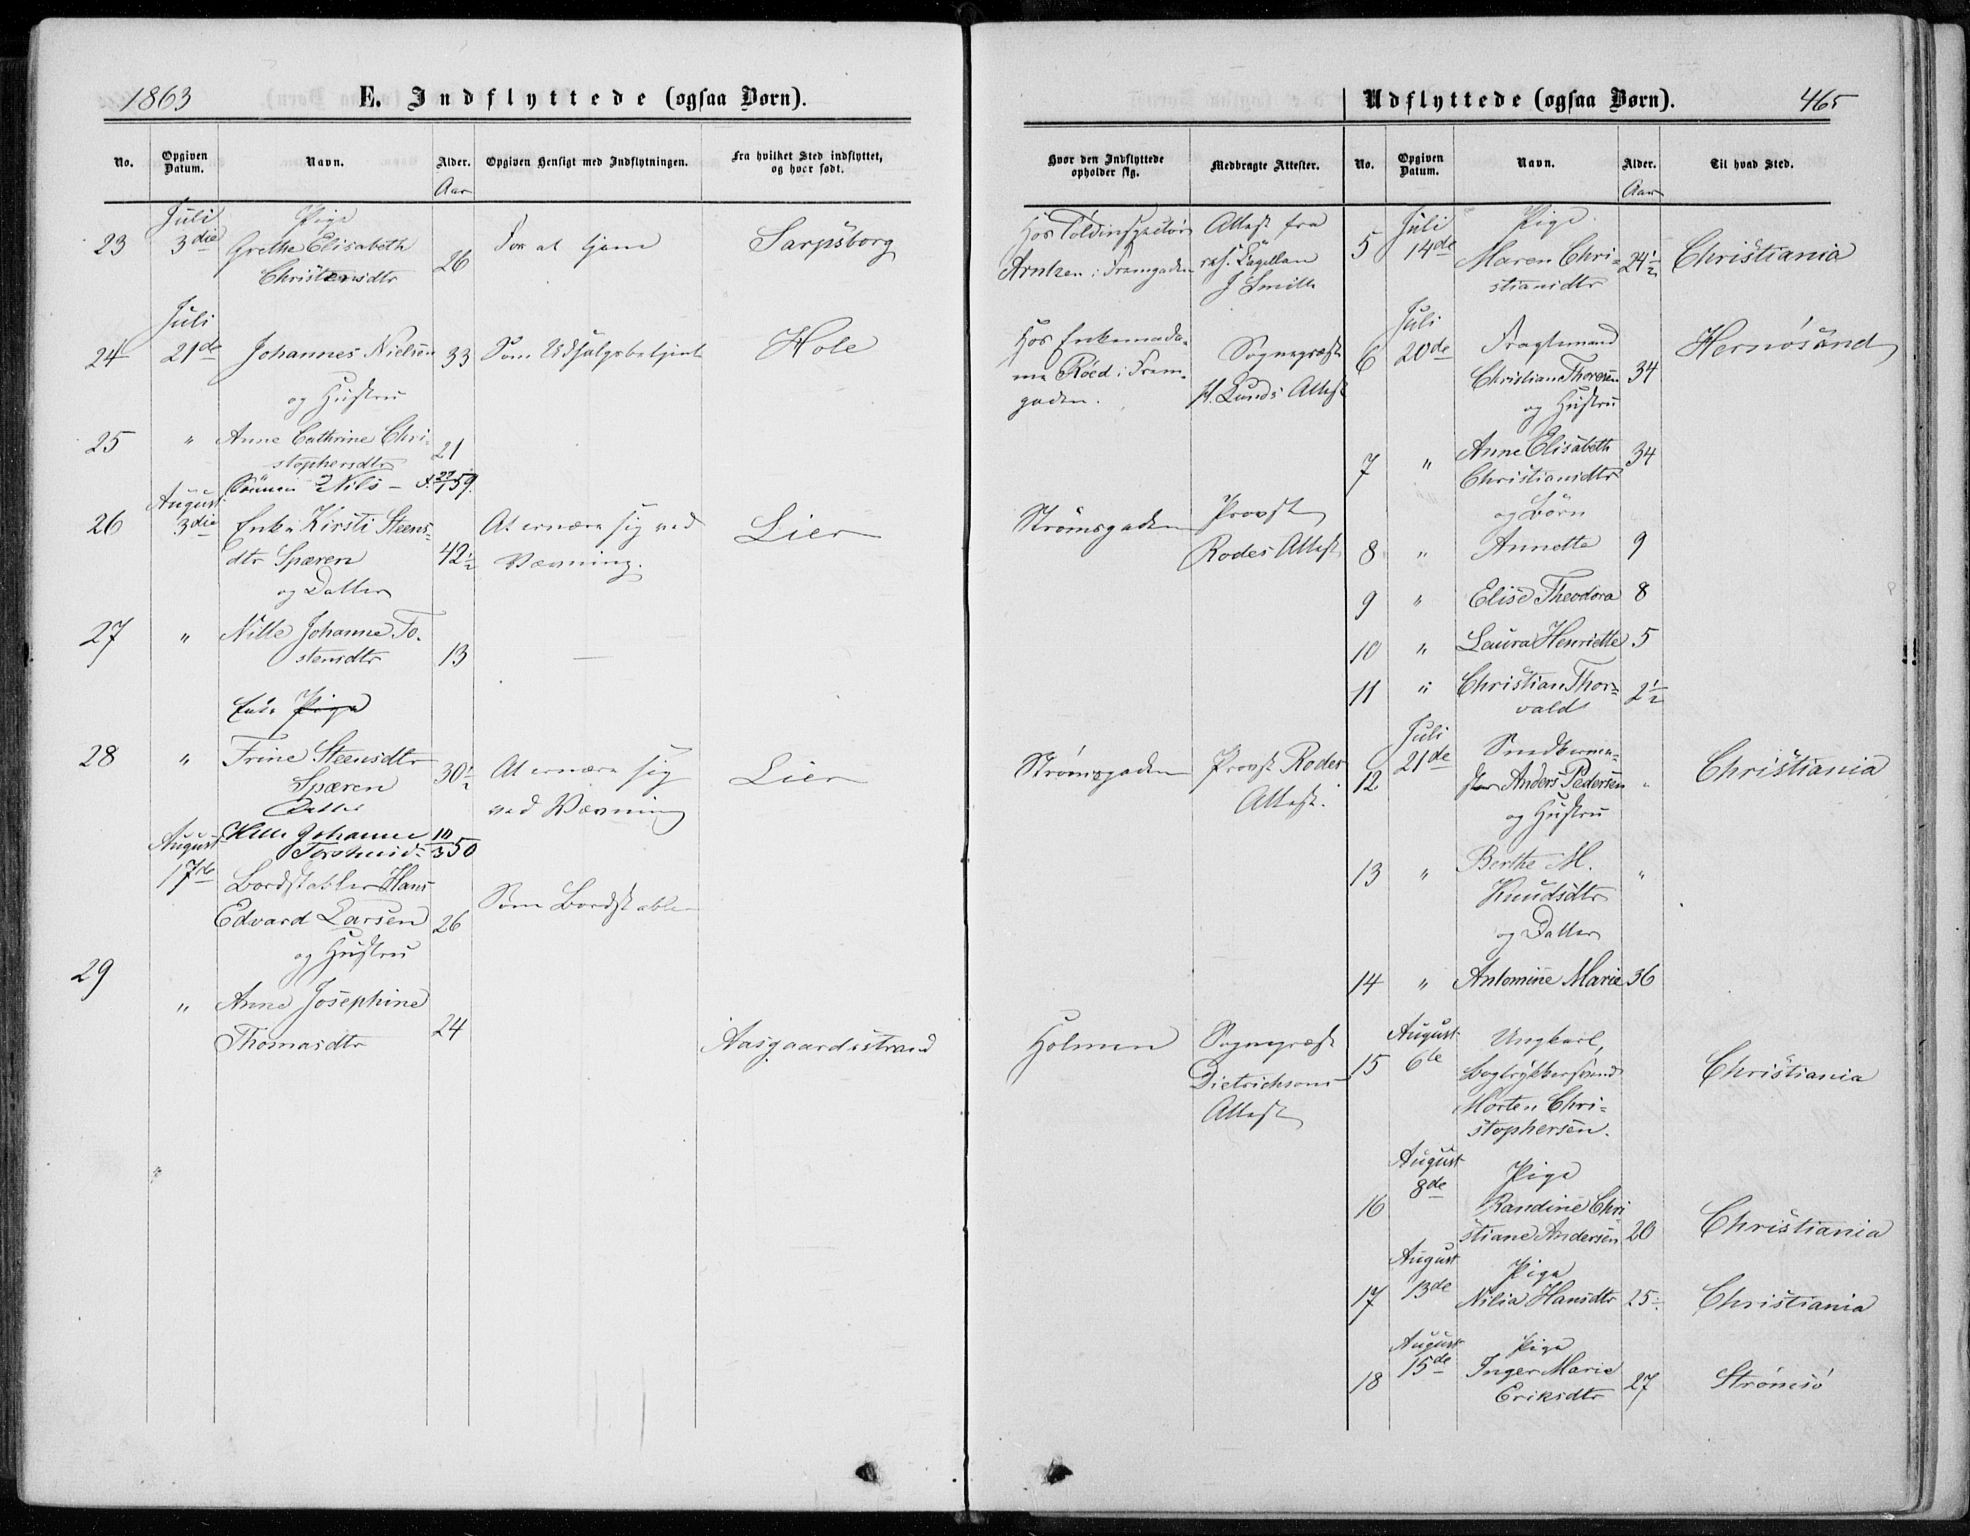 1863
E. Indflyttede (ogsaa Børn).
No. Opgiven Datum. Navn. Alder. Opgiven Hensigt med Indflytningen. Fra hvilket Sted indflyttet, og hvor født.
Aar
Juli Pige
23 3die Grethe Elisabeth For at tjene Sarpsborg
Christensdtr 26
Juli
24 21de Johannes Nielsen 33 Som Udsalgsbetjent Hole
og Hustru
25 " Anne Cathrine Chri-
stophersdtr 21
Sönnen Nils - f. 27/1 59.
August
26 3die Enke Kirsti Steens- At ernære sig ved Lier
dtr Spæren 42½ Vævning.
og Datter
27 " Nille Johanne To-
stensdtr 13 —
Enke Pige
28 " Trine Steensdtr
Spæren 30½ At ernære sig Lier
Datter ved Vævning
August Johanne 10/3 50
17de Bordstabler Hans
Edvard Larsen 26 Som Bordstabler
og Hustru
29
" Anne Josephine
Thomasdtr 24 Aasgaardsstrand
Udflyttede (ogsaa Børn). 465
Hvor den Indflyttede opholder sig. Medbragte Attester. No. Opgiven Datum. Navn. Alder. Til hvad Sted.
Aar
Hos Toldinspectør Attest fra Juli Pige
Arntzen i Tramgaden res. Capellan 5 14de Maren Chri- 24½ Christiania
J Smith stiansdtr
Hos Enkemada- Juli
me Röed i Tram- Sognepræst 6 20de Fragtemand Hernösand
gaden. H. Lunds Attest Christian Thoresen 34
og Hustru
7 " Anne Elisabeth 34
Christiansdtr
og Börn
Strömsgaden Provst
Rodes Attest 8 " Annette 9
9 " Elise Theodora 8
10 " Laura Henriette 5
11 " Christian Thor- 2½
vald
Juli
Strömsgaden Provst Rodes 12 21de Smedkerme- Christiania
Attest. ster Anders Pedersen "
og Hustru
13 " Berthe M. "
Knudsdtr
og Datter
14 " Antomine Marie 36
Holmen Sognepræst August Ungkarl,
Dietrichsons 15 6te Bogtrykkersvend Christiania
Attest Morten Chri-
stophersen.
August Pige
8de
16 Randine Chri
stiane Andersen 20 Christiania
August Pige
17 13de Nilia Hansdtr 25½ Christiania
August Pige
15de Inger Marie
18 Eriksdtr 27 Strömsö